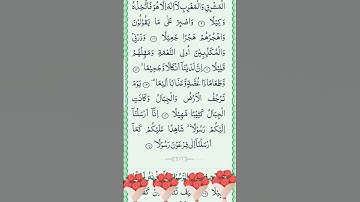 الْمَشْرِقِ وَالْمَغْرِبِ لَآ اِلٰهَ اِلَّا هُوَ فَاتَّخِذْهُ
وَكِيْلًا ۝ وَاصْبِرْ عَلٰى مَا يَقُوْلُوْنَ
وَاهْجُرْهُمْ هَجْرًا جَمِيْلًا ۝ وَذَرْنِيْ
وَالْمُكَذِّبِيْنَ اُولِي النَّعْمَةِ وَمَهِّلْهُمْ
قَلِيْلًا ۝ اِنَّ لَدَيْنَآ اَنْكَالًا وَّجَحِيْمًا ۝
وَّطَعَامًا ذَا غُصَّةٍ وَّعَذَابًا اَلِيْمًا ۝ يَوْمَ
تَرْجُفُ الْاَرْضُ وَالْجِبَالُ وَكَانَتِ
الْجِبَالُ كَثِيْبًا مَّهِيْلًا ۝ اِنَّآ اَرْسَلْنَآ
اِلَيْكُمْ رَسُوْلًا شَاهِدًا عَلَيْكُمْ كَمَآ
اَرْسَلْنَآ اِلٰى فِرْعَوْنَ رَسُوْلًا ۝